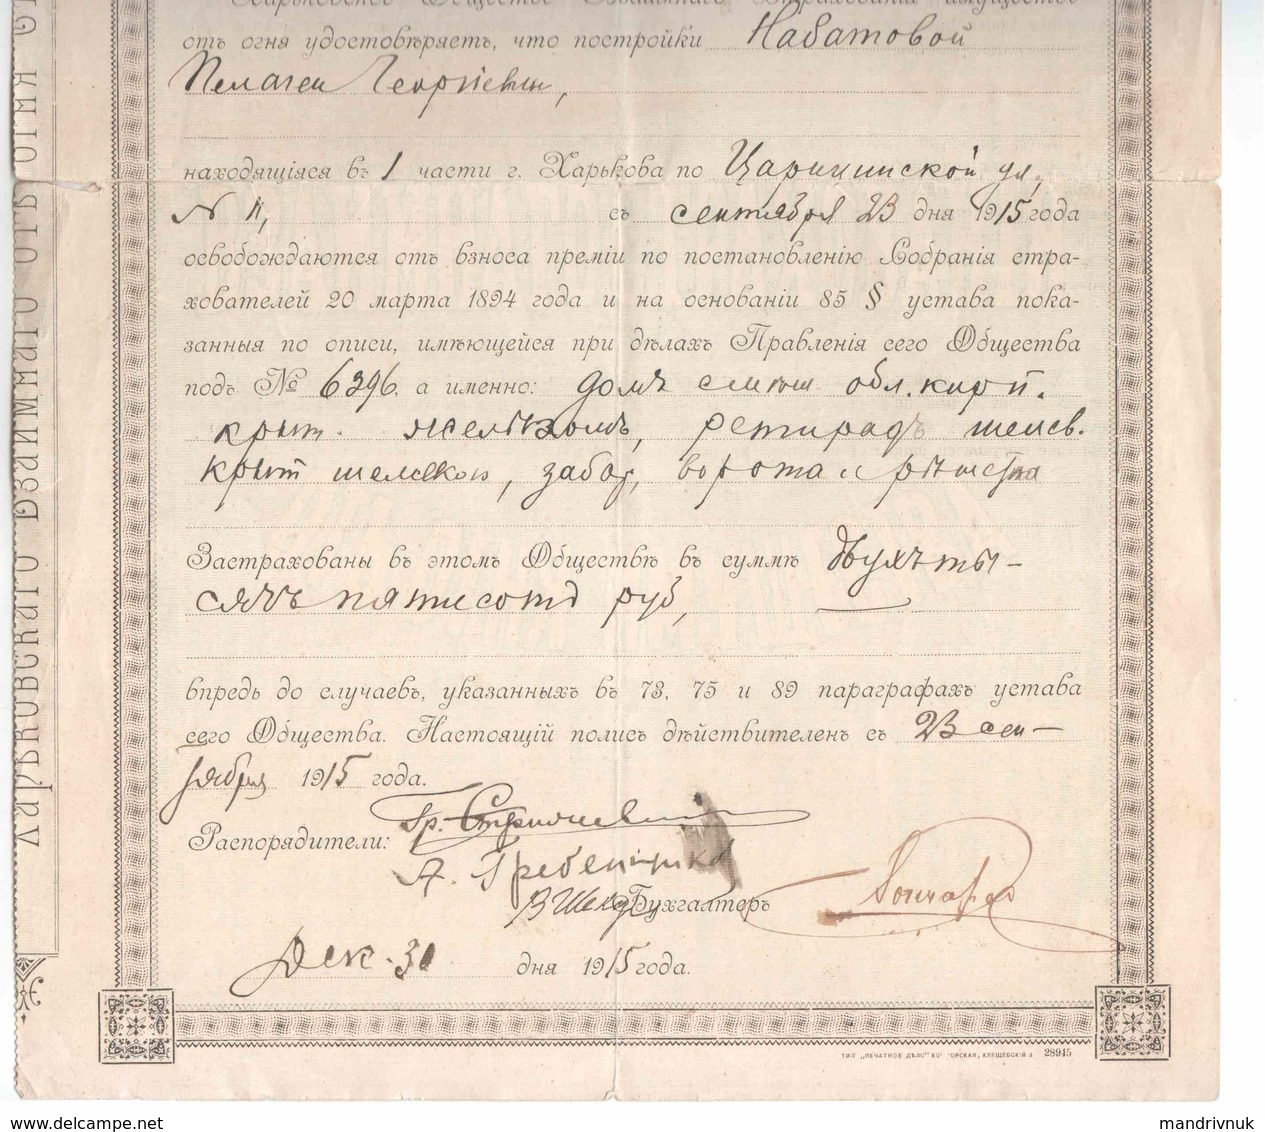 Харьковское Общество Взаимнаго Страхованія имуществъ
отъ огня удостовѣряетъ, что постройки Набатовой
Пелагеи Георгіевны,
находящіяся въ 1 части г. Харькова по Царицинской ул,
N 11, съ сентября 23 дня 1915 года
освобождаются отъ взноса преміи по постановленію Собранія стра-
хователей 20 марта 1894 года и на основаніи 85 § устава пока-
занныя по описи, имѣющейся при дѣлахъ Правленія сего Общества
подъ № 6396, а именно: домъ смѣш. обл. кирп.
крыт. желѣзомъ, ретирадъ шелев.
крыт шелевкою, забор, ворота и рѣшетка
Застрахованы въ этомъ Обществѣ въ суммѣ двухъ ты-
сячъ пятисотъ руб,
впредь до случаевъ, указанныхъ въ 73, 75 и 89 параграфахъ устава
сего Общества. Настоящій полисъ дѣйствителенъ съ 23 сен-
тября 1915 года.
Распорядители:
А. Гребенщиков
Бухгалтеръ Гончаров
Дек. 31 дня 1915 года.
ТИП „ПЕЧАТНОЕ ДѢЛО“ КОРСКАЯ, КЛЕЩЕВСКІЙ 28915
ХАРЬКОВСКАГО ВЗАИМНАГО ОТЪ ОГНЯ
www.delcampe.net
mandrivnuk